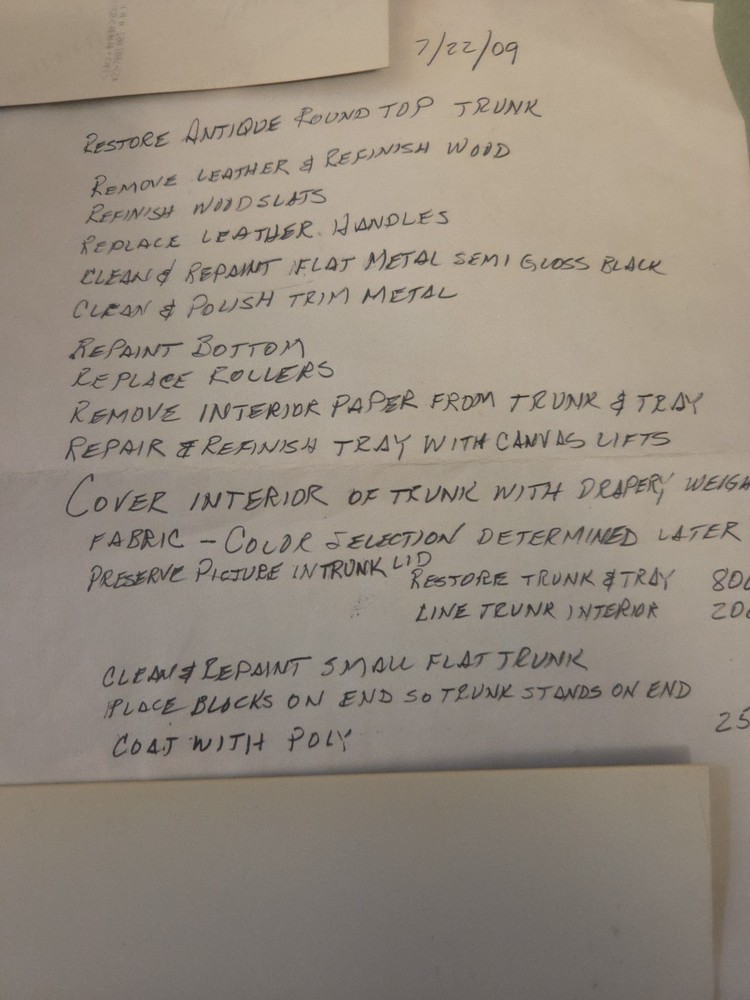 7/22/09
RESTORE ANTIQUE ROUND TOP TRUNK
REMOVE LEATHER & REFINISH WOOD
REFINISH WOOD SLATS
REPLACE LEATHER HANDLES
CLEAN & REPAINT FLAT METAL SEMI GLOSS BLACK
CLEAN & POLISH TRIM METAL
REPAINT BOTTOM
REPLACE ROLLERS
REMOVE INTERIOR PAPER FROM TRUNK & TRAY
REPAIR & REFINISH TRAY WITH CANVAS LIFTS
COVER INTERIOR OF TRUNK WITH DRAPERY WEIGH
FABRIC - COLOR SELECTION DETERMINED LATER
PRESERVE PICTURE IN TRUNK LID
RESTORE TRUNK & TRAY 800
LINE TRUNK INTERIOR 200
CLEAN & REPAINT SMALL FLAT TRUNK
PLACE BLOCKS ON END SO TRUNK STANDS ON END
25
COAT WITH POLY